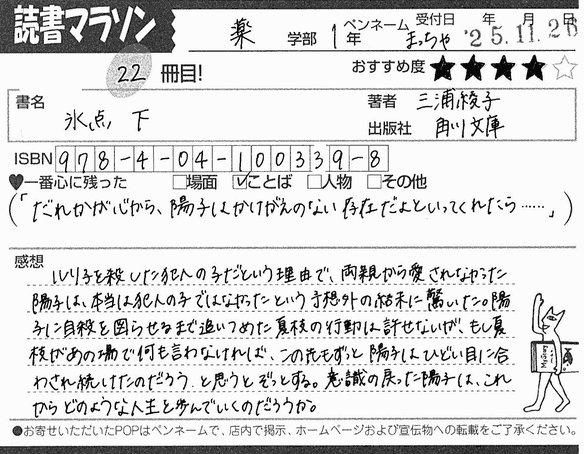 読書マラソン
薬 学部 1年 ペンネーム まっちゃ 受付日 '25.11.26 年 月 日
22 冊目! おすすめ度 ★★★★☆
書名 氷点 下
著者 三浦綾子
出版社 角川文庫
ISBN 978-4-04-100339-8
♥一番心に残った □場面 ☑ことば □人物 □その他
(「だれかが心から、陽子はかけがえのない存在だよといってくれたら……」)
感想
ルリ子を殺した犯人の子だという理由で、両親から愛されなかった
陽子は、本当は犯人の子ではなかったという予想外の結末に驚いた。陽
子に自殺を図らせるまで追いつめた夏枝の行動は許せないが、もし夏
枝があの場で何も言わなければ、この先もずっと陽子はひどい目に合
わされ続けたのだろう、と思うとぞっとする。意識の戻った陽子は、これ
からどのような人生を歩んでいくのだろうか。
●お寄せいただいたPOPはペンネームで、店内で掲示、ホームページおよび宣伝物への転載をご了承ください。